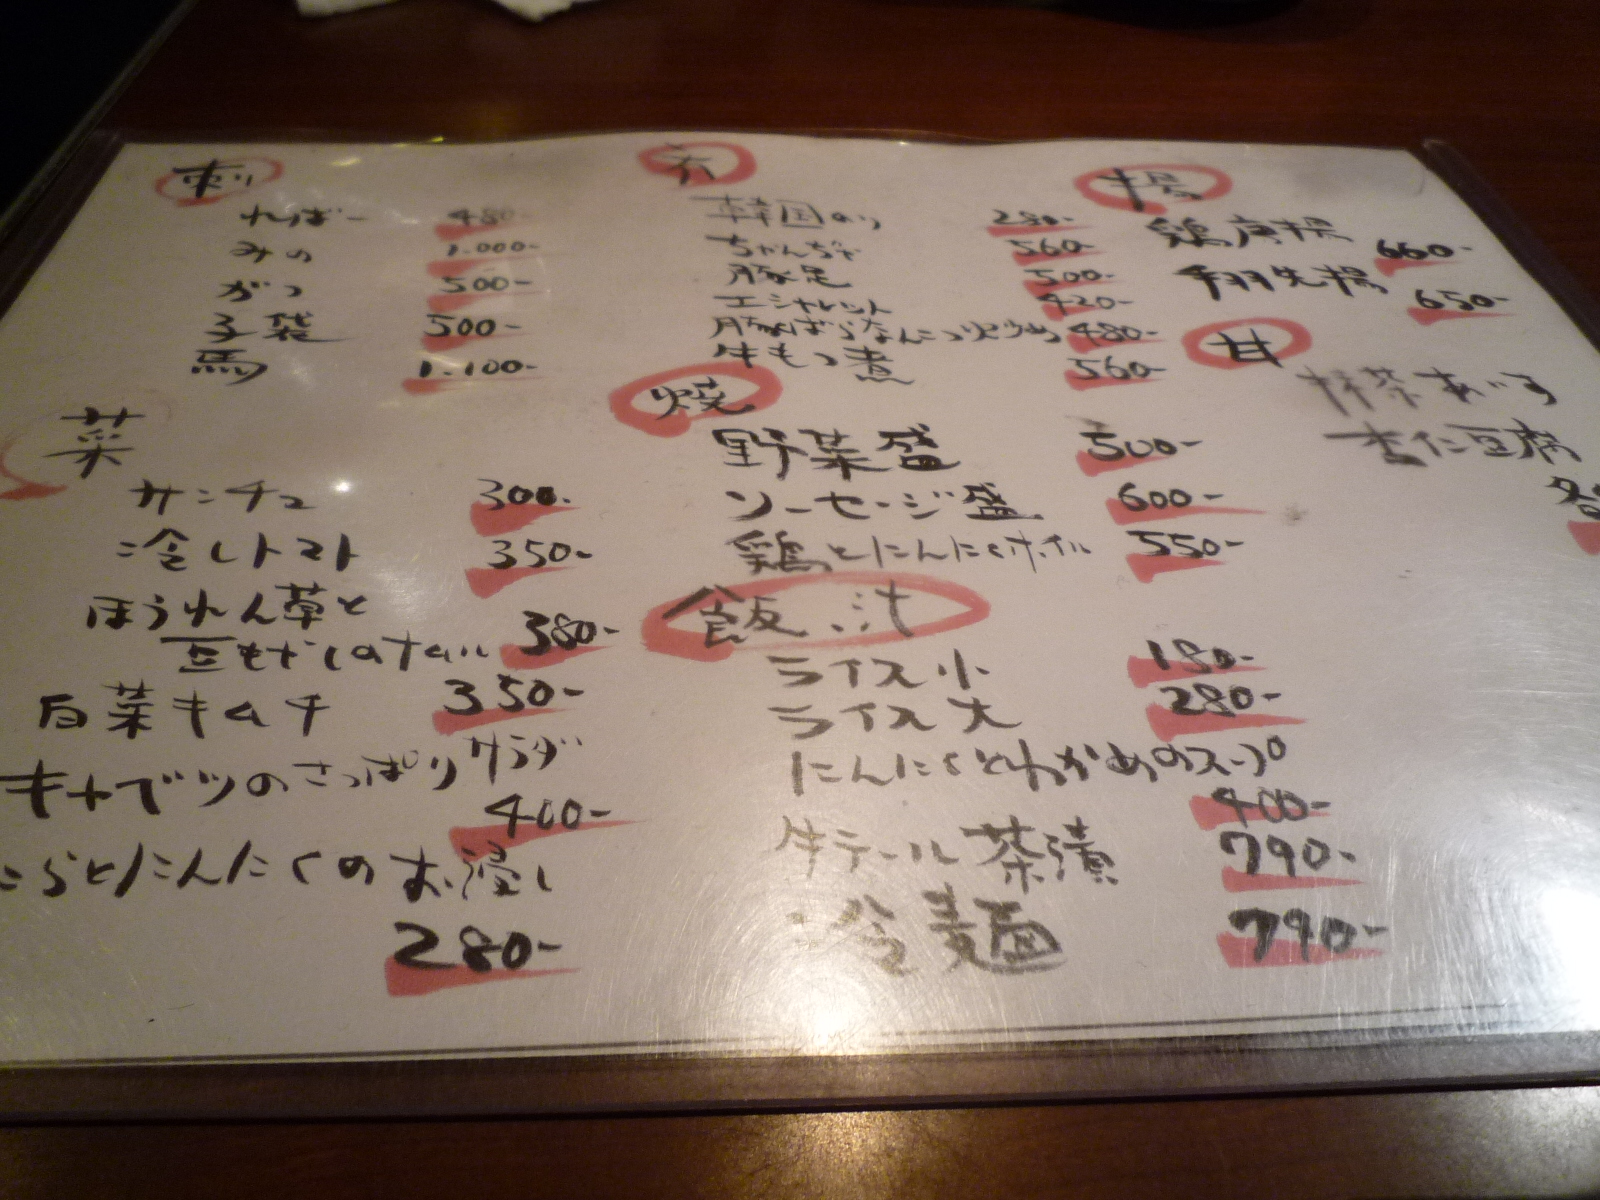 刺
ればー 480-
みの 1.000-
がつ 500-
子袋 500-
馬 1.100-
菜
サンチュ 300-
冷しトマト 350-
ほうれん草と
豆もやしのナムル 380-
白菜キムチ 350-
キャベツのさっぱりサラダ
400-
にらとにんにくのお浸し
280-
韓国のり 280-
ちゃんぢゃ 560-
豚足 500-
エシャレット 420-
豚ばらなんこつ 480-
牛もつ煮 560-
焼
野菜盛 500-
ソーセージ盛 600-
鶏とにんにくホイル 550-
飯 汁
ライス小 180-
ライス大 280-
にんにくとわかめのスープ
400-
牛テール茶漬 790-
冷麺 790-
揚
鶏唐揚 660-
手羽先揚 650-
甘
抹茶あいす
杏仁豆腐
各